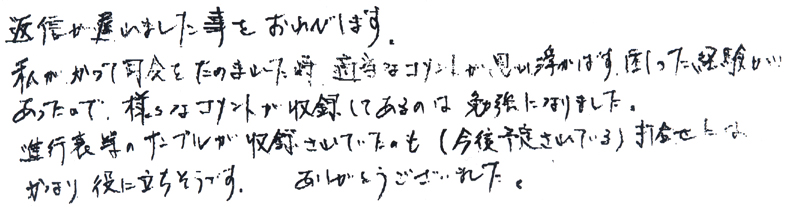 返信が遅れました事をおわびします。
私がかつて司会をたのまれた時、適当なコメントが思い浮かばず、困った経験が
あったので、様々なコメントが収録してあるのは勉強になりました。
進行表等のサンプルが収録されていたのも(今後予定されている)打合せには
かなり役に立ちそうです。 ありがとうございました。